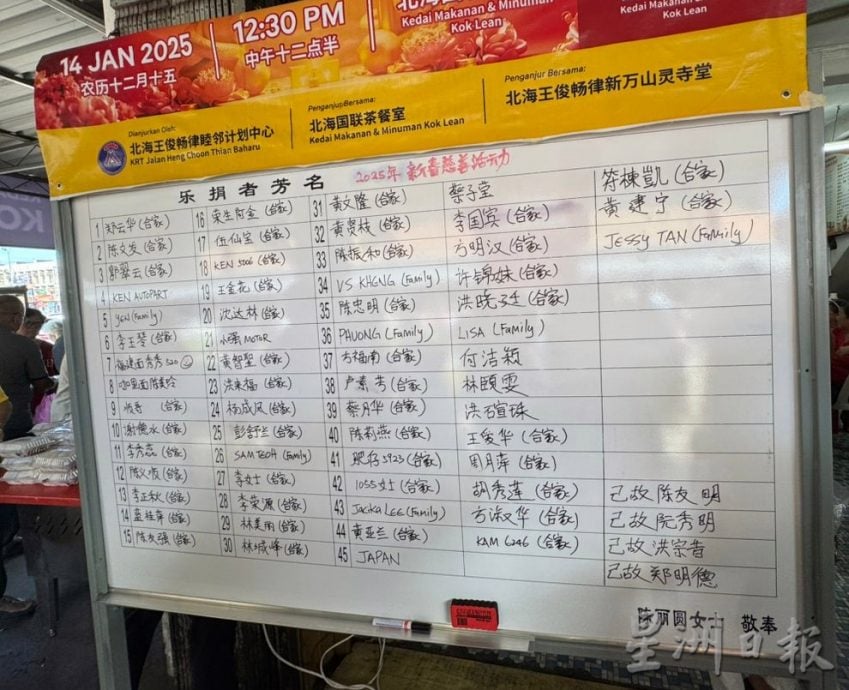 14 JAN 2025
农历十二月十五
12:30 PM
中午十二点半
Kedai Makanan & Minuman
Kok Lean
Kok Lean
Dianjurkan Oleh:
北海王俊畅律睦邻计划中心
KRT Jalan Heng Choon Thian Baharu
Penganjur Bersama:
北海国联茶餐室
Kedai Makanan & Minuman Kok Lean
Penganjur Bersama:
北海王俊畅律新万山灵寺堂
乐捐者芳名
2025年 新春慈善活动
1 郑云华 (合家)
2 陈文发 (合家)
3 翠云 (合家)
4 KEN AUTOPART
5 YEN (Family)
6 李玉琴 (合家)
7 福建面秀秀 520
8 咖里面陈美玲
9 (合家)
10 谢德水 (合家)
11 李秀蕊 (合家)
12 陈义顺 (合家)
13 李正秋 (合家)
14 蓝桂萍 (合家)
15 陈友强 (合家)
16 荣生府金 (合家)
17 伍仙宝 (合家)
18 KEN 5006 (合家)
19 王金花 (合家)
20 沈达林 (合家)
21 小强 MOTOR
22 黄智圣 (合家)
23 洪来福 (合家)
24 杨成风 (合家)
25 彭舒兰 (合家)
26 SAM TEOH (Family)
27 李女士 (合家)
28 李荣源 (合家)
29 林美丽 (合家)
30 林城峰 (合家)
31 黄文隆 (合家)
32 黄贵枝 (合家)
33 陈振和 (合家)
34 VS KHENG (Family)
35 陈忠明 (合家)
36 PHUONG (Family)
37 方福南 (合家)
38 卢素芳 (合家)
39 蔡月华 (合家)
40 陈莉燕 (合家)
41 肥仔 3923 (合家)
42 1055女士 (合家)
43 Jacka LEE (Family)
44 黄亚兰 (合家)
45 JAPAN
蔡子堂
李国宾 (合家)
方明汉 (合家)
许锦妹 (合家)
洪晓 (合家)
LISA (Family)
付洁颖
林颐雯
洪碹珠
王爱华 (合家)
周月萍 (合家)
胡秀莲 (合家)
方淑华 (合家)
KAM 6246 (合家)
符栋凯 (合家)
黄建宁 (合家)
JESSY TAN (Family)
己故陈友明
己故阮秀明
己故洪宗昔
己故郑明德
陈丽圆女士 敬奉
星洲日报